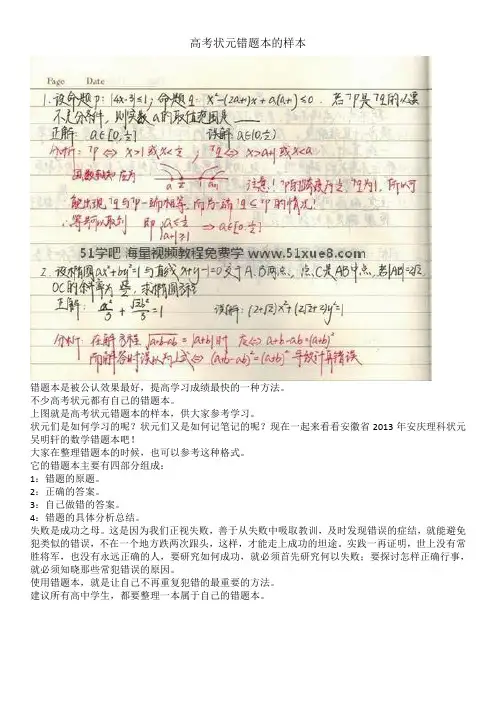 高考状元错题本的样本
Page Date
1.设命题p:|4x-3|≤1;命题q:x²-(2a+1)x+a(a+1)≤0.若┐p是┐q的必要
不充分条件,则实数a的取值范围是____
正解:a∈[0,½] 误解:a∈(0,½)
分析:┐p⇔x>1或x<½;┐q⇔x>a+1或x<a
注意!┐p的跨度为½,┐q为1,所以可
能出现┐q与┐p一端相等,而另一端┐q≤┐p的情况!
∴等号可以取到 即 a≤½ a+1≥1 ⇒a∈[0,½]
51学吧 海星视频教程免费学 www.51xue8.com
2.设椭圆ax²+by²=1与直线x+y-1=0交于A、B两点,点C是AB中点,若|AB|=2√2,
OC的斜率为,求椭圆方程
正解:x²/3+√2y²/3=1 误解:(2+√2)x²+(2√2+2)y²=1
分析:在解方程 √a+b-ab=|a+b|时 应⇔a+b-ab=(a+b)²
而解答时误以为上式⇔(a+b-ab)²=(a+b)²导致计算错误
错题本是被公认效果最好,提高学习成绩最快的一种方法。
不少高考状元都有自己的错题本。
上图就是高考状元错题本的样本,供大家参考学习。
状元们是如何学习的呢?状元们又是如何记笔记的呢?现在一起来看看安徽省 2013 年安庆理科状元
吴明轩的数学错题本吧!
大家在整理错题本的时候,也可以参考这种格式。
它的错题本主要有四部分组成:
1:错题的原题。
2:正确的答案。
3:自己做错的答案。
4:错题的具体分析总结。
失败是成功之母。这是因为我们正视失败,善于从失败中吸取教训,及时发现错误的症结,就能避免
犯类似的错误,不在一个地方跌两次跟头,这样,才能走上成功的坦途。实践一再证明,世上没有常
胜将军,也没有永远正确的人,要研究如何成功,就必须首先研究何以失败;要探讨怎样正确行事,
就必须知晓那些常犯错误的原因。
使用错题本,就是让自己不再重复犯错的最重要的方法。
建议所有高中学生,都要整理一本属于自己的错题本。